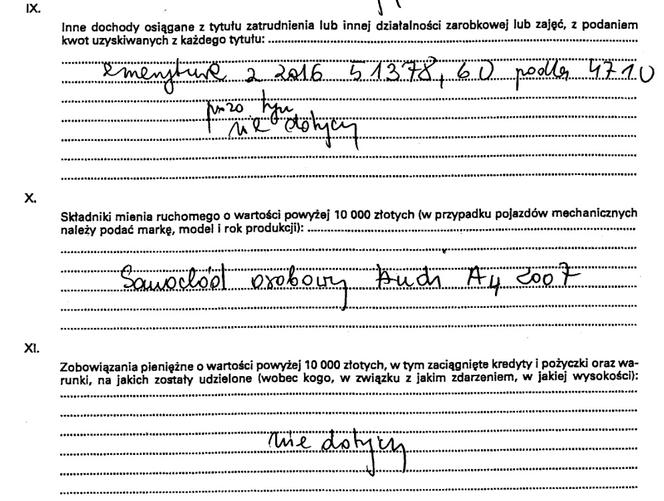 IX.
Inne dochody osiągane z tytułu zatrudnienia lub innej działalności zarobkowej lub zajęć, z podaniem
kwot uzyskiwanych z każdego tytułu:
emeryturę z 2016 51378,60 podles 4710
poza tym
nie dotyczy
X.
Składniki mienia ruchomego o wartości powyżej 10 000 złotych (w przypadku pojazdów mechanicznych
należy podać markę, model i rok produkcji):
Samochód osobowy Audi A4 2007
XI.
Zobowiązania pieniężne o wartości powyżej 10 000 złotych, w tym zaciągnięte kredyty i pożyczki oraz wa-
runki, na jakich zostały udzielone (wobec kogo, w związku z jakim zdarzeniem, w jakiej wysokości):
nie dotyczy